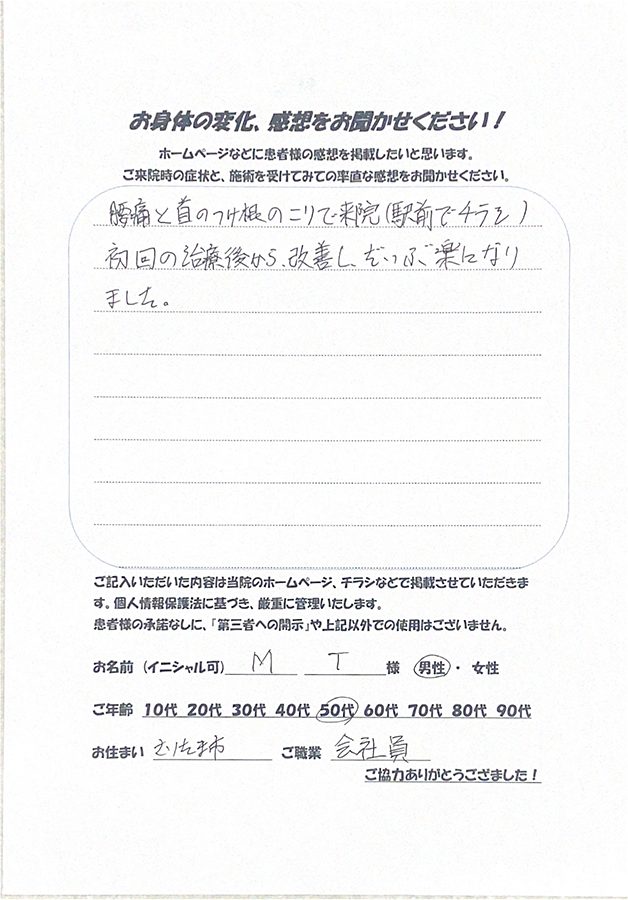 お身体の変化、感想をお聞かせください！
ホームページなどに患者様の感想を掲載したいと思います。
ご来院時の症状と、施術を受けてみての率直な感想をお聞かせください。
腰痛と首のつけ根のコリで来院(駅前でチラシ)
初回の治療後から、改善し、だいぶ楽になり
ました。
ご記入いただいた内容は当院のホームページ、チラシなどで掲載させていただきま
す。個人情報保護法に基づき、厳重に管理いたします。
患者様の承諾なしに、「第三者への開示」や上記以外での使用はございません。
お名前（イニシャル可） M T 様 男性・女性
ご年齢 10代 20代 30代 40代 50代 60代 70代 80代 90代
お住まい さいたま市 ご職業 会社員
ご協力ありがとうござました！